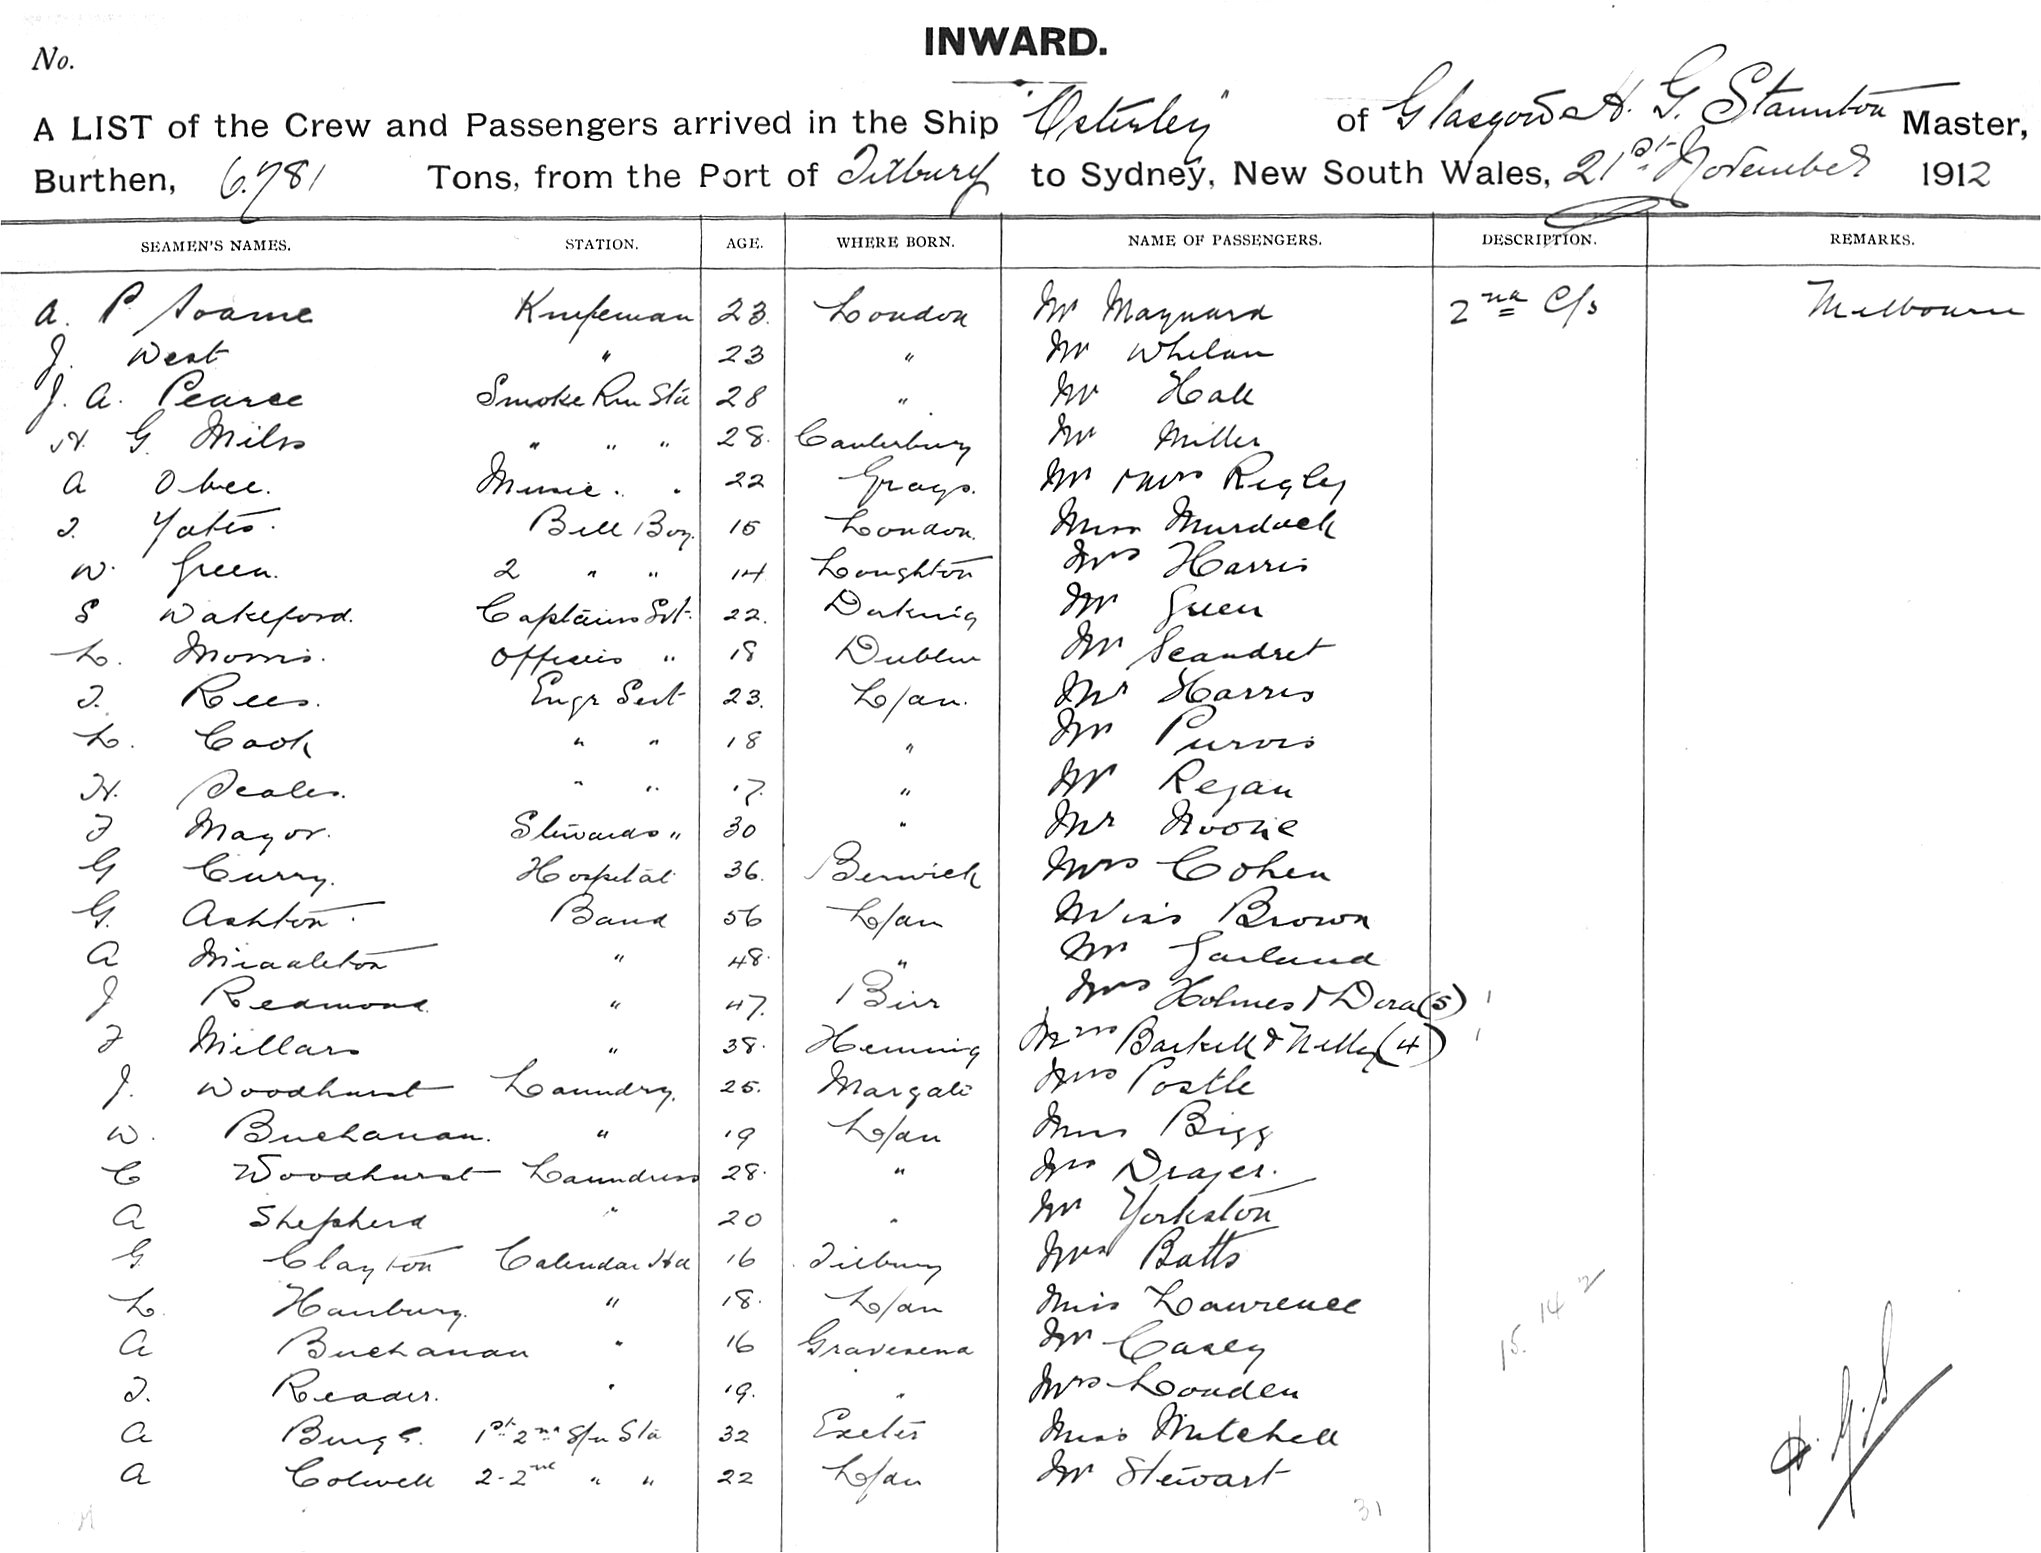 INWARD.
No.
A LIST of the Crew and Passengers arrived in the Ship "Osterley" of Glasgow H. G. Staunton Master,
Burthen, 6.781 Tons, from the Port of Tilbury to Sydney, New South Wales, 21st November 1912
SEAMEN'S NAMES. STATION. AGE. WHERE BORN. NAME OF PASSENGERS. DESCRIPTION. REMARKS.
A. P. Soame Knifeman 23. London Mr Maynard 2nd C/s Melbourne
J. West " 23 " Mr Whelan
J. A. Pearce Smoke Rm Std 28 " Mr Hall
H. G. Mills " " " 28. Canterbury Mr Miller
A Obee. Music. " 22 Grays. Mr & Mrs Rigley
T. Yates. Bell Boy. 15 London. Miss Murdock
W. Green. 2 " " 14 Loughton Mrs Harris
S Wakeford. Captains Svt. 22. Dorking Mr Green
L. Morris. Officers " 18 Dublin Mr Scandret
T. Rees. Engr Svt 23. L/on. Mr Harris
L. Cook " " 18 " Mr Purvis
H. Scales. " " 17. " Mr Regan
F Mayor. Stewards " 30 " Mr
G Curry. Hospital 36. Berwick Mrs Cohen
G. Ashton. Band 56 L/on Miss Brown
A Middleton " 48. " Mr Garland
J Redmond. " 47. Birr Mrs Holmes & Dora (5) 1
F Millars " 38. Mrs & Nelly (4) 1
J. Woodhurst Laundry. 25. Margate Mrs Postle
W. Buchanan. " 19 L/on Miss Bigg
C Woodhurst Laundress 28. " Mrs
A Shepherd " 20 " Mr Yorkston
G Clayton Calendar Hd 16 Tilbury Mrs Batts
L. Hanbury. " 18. L/on Miss Lawrence
A Buchanan " 16 Gravesend Mr Casey
T. Reader. " 19. " Mrs Louden
A 1st 2nd S/n Std 32 Exeter Miss Mitchell
A Colwell 2-2nd " " 22 L/on Mr Stewart
15. 14 2
H. G. S
31